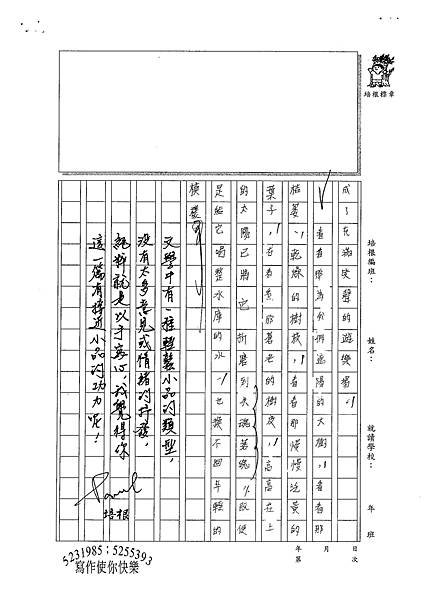 培根標章
培根編班：
姓名：
就讀學校：
年 班
年 月 日
第 次
成了充滿笑聲的遊樂場。
看看那為我們遮陽的大樹，看看那
枯萎、乾燥的樹枝，看看那慢慢泛黃的
葉子，看看那蒼老的樹皮，高高在上
的太陽已將它折磨到失魂落魄。即使
是給它喝整水庫的水，也換不回年輕的
模樣
文學中有一種輕鬆小品的類型，
沒有太多意見或情緒的抒發，
純粹就是以手寫心，我覺得你
這一篇有接近小品的功力呢！
Paul
培根
5231985；5255393
寫作使你快樂